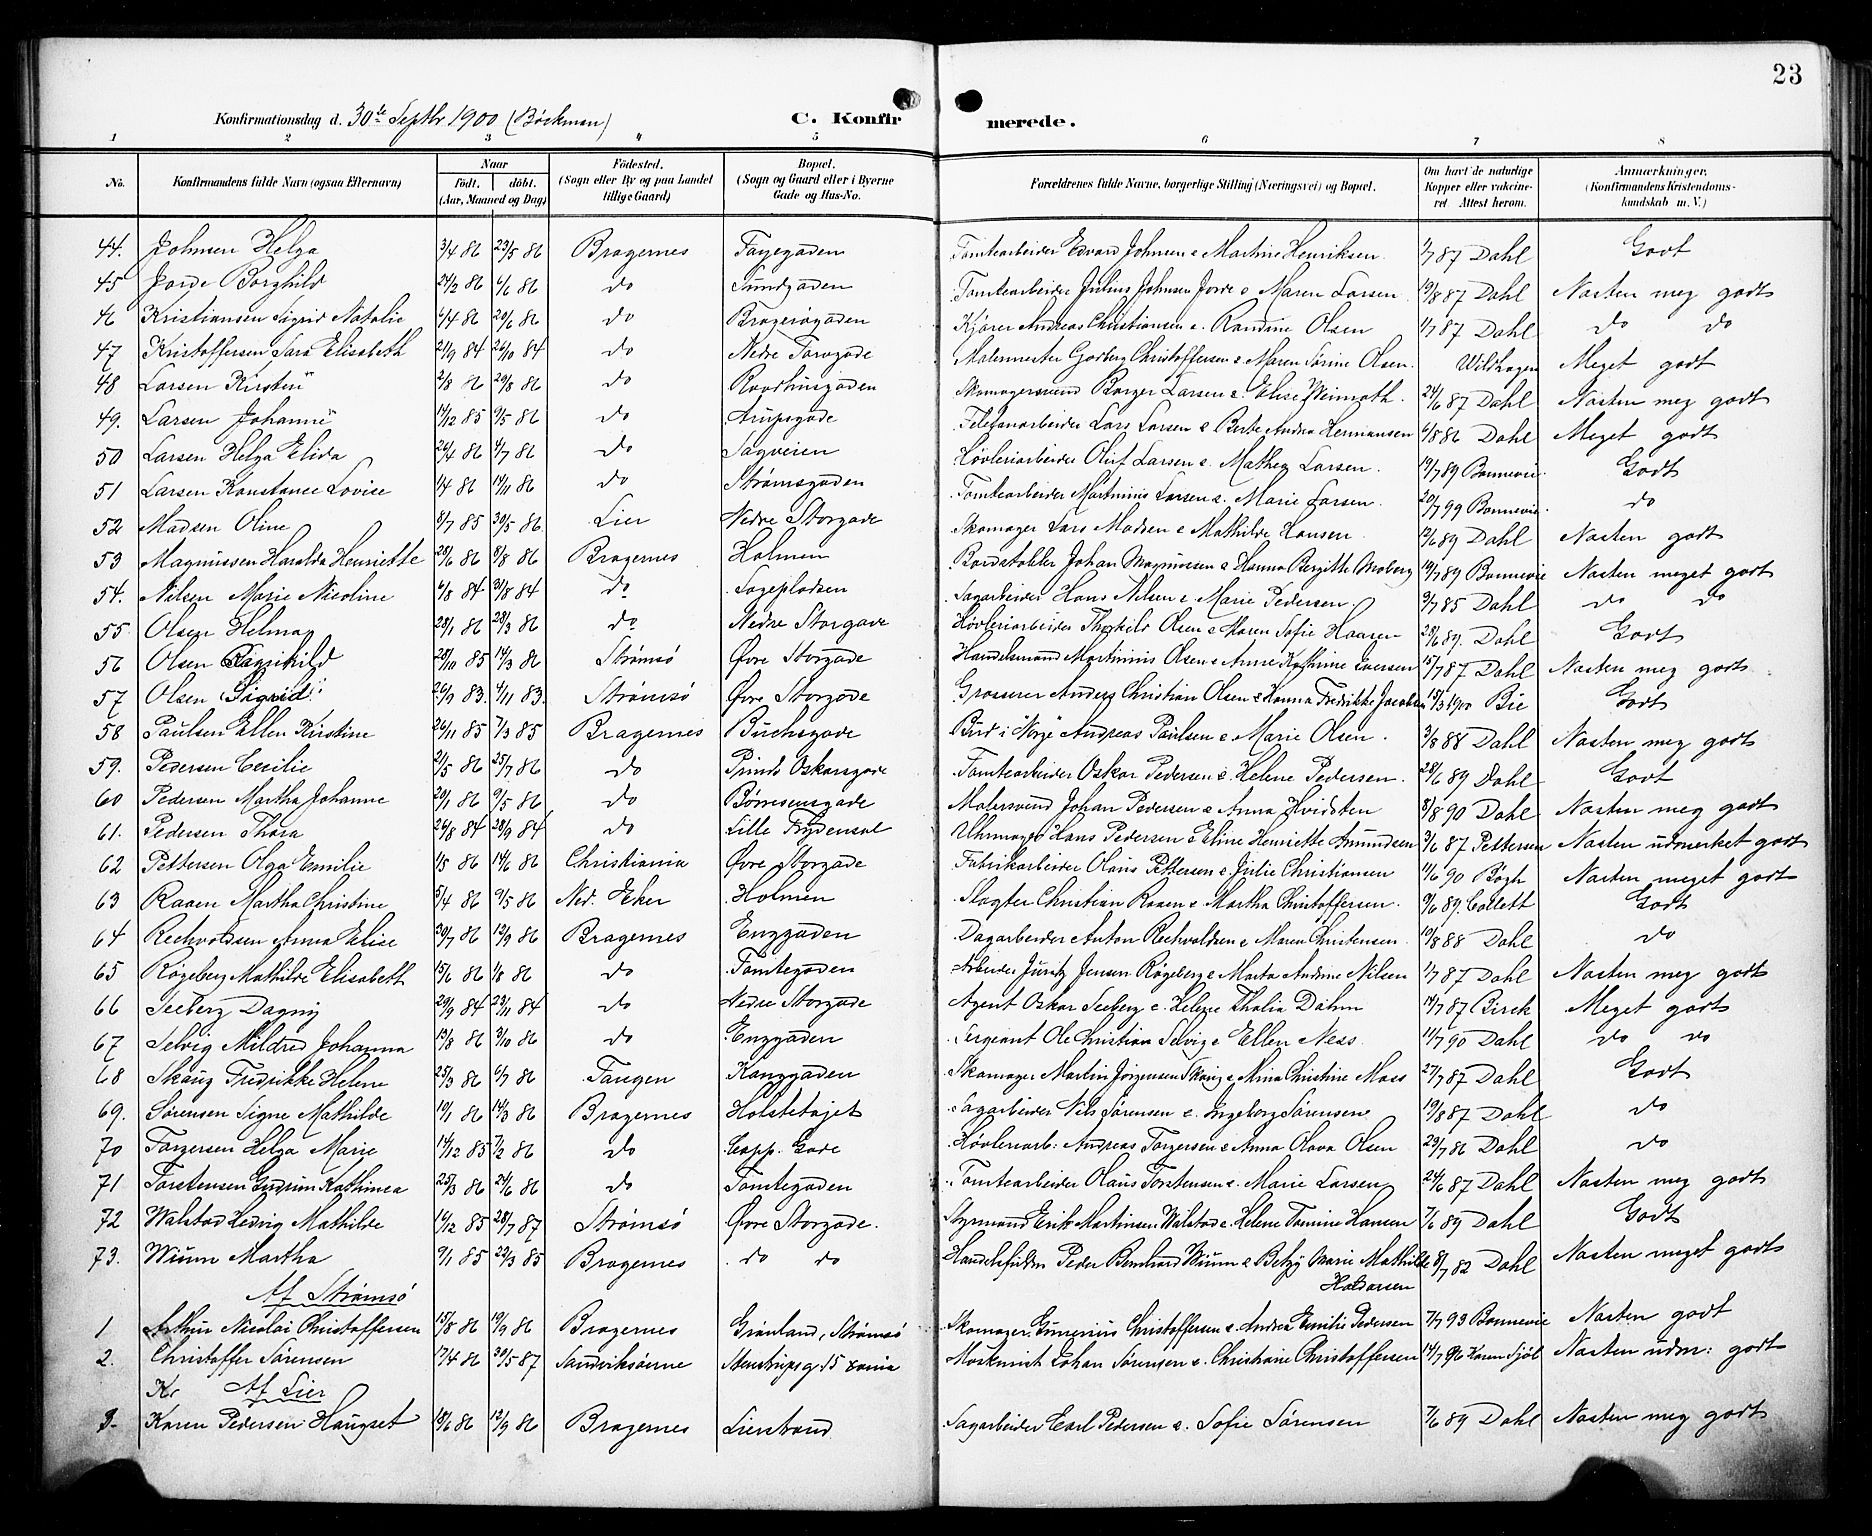 23
Konfirmationsdag d. 30te Septbr 1900 (Böckman) C. Konfirmerede.
1 2 3 4 5 6 7 8
No. Konfirmandens fulde Navn (ogsaa Efternavn) Naar födt. döbt. (Aar, Maaned og Dag) Födested. (Sogn eller By og paa Landet tillige Gaard) Bopæl. (Sogn og Gaard eller i Byerne Gade og Hus-No. Forældrenes fulde Navne, borgerlige Stilling (Næringsvei) og Bopæl. Om havt de naturlige Kopper eller vaccineret. Attest herom. Anmærkninger. (Konfirmandens Kristendomskundskab m. V.)
44. Johnsen Helga 3/4 86 23/5 86 Bragernes Fayegaden Tomtearbeider Edvard Johnsen & Martine Henriksen 1/7 87 Dahl Godt
45 Jorde Borghild 24/2 86 6/6 86 do Sundgaden Tomtearbeider Julius Johnsen Jorde & Maren Larsen 19/8 87 Dahl Næsten meg godt
46 Kristiansen Sigrid Natalie 6/4 86 20/6 86 do Bragerøgaden Kjører Andreas Christiansen & Randine Olsen 1/7 87 Dahl do do
47 Kristoffersen Sara Elisabeth 21/9 84 26/10 84 do Nedre Torvgade Malermester Godberg Christoffersen & Maren Sørine Olsen. Wildhagen Meget godt
48 Larsen Kirsten 2/8 86 29/8 86 do Raadhusgaden Skomagersvend Borger Larsen & Elise Weinoth. 24/6 87 Dahl Næsten meg godt
49. Larsen Johanne 14/12 85 9/5 86 do Arupsgade Telefonarbeider Lars Larsen & Berte Andrea Hermansen 6/8 86 Dahl Meget godt
50 Larsen Helga Elida 26/4 86 4/7 86 do Sagveien Høvleriarbeider Oluf Larsen & Mathea Larsen. 19/7 89 Bonnevie. Godt
51 Larsen Konstance Lovise 1/4 86 14/11 86 do Strømsgaden Tomtearbeider Martinius Larsen & Marie Larsen. 20/7 99 Bonnevie. do
52 Madsen Oline 8/7 85 30/5 86 Lier Nedre Storgade Skomager Lars Madsen & Mathilde Hansen 12/6 89 Dahl Næsten godt
53 Magnussen Haralda Henriette 28/6 86 8/8 86 Bragernes Holmen Bordstabler Johan Magnussen & Hanna Bergitte Moberg 19/7 89 Bonnevie Næsten meget godt
54. Nilsen Marie Nicoline 6/8 84 31/8 84 do Sageplodsen Sagarbeider Hans Nilsen & Marie Pedersen. 9/7 85 Dahl do do
55. Olsen Helma 28/1 86 28/3 86 do Nedre Storgade Høvleriarbeider Thorkild Olsen & Maren Sofie Haagen 28/6 87. Dahl Godt
56 Olsen Ragnhild 28/10 85 14/3 86 Strømsø Øvre Storgade Handelsmand Martinius Olsen & Anne Kathrine Evensen 15/7 87 Dahl Næsten meg godt
57 Olsen Sigrid 26/9 83. 4/11 83. Strømsø Øvre Storgade Grosserer Anders Christian Olsen & Hanna Fredrikke Jacobsen 15/3 1900 Bie Godt
58 Paulsen Ellen Kirstine 26/11 85 7/3 85 Bragernes Buchsgade Bud i "Norge" Andreas Paulsen & Marie Olsen. 3/8 88 Dahl Næsten meg godt
59. Pedersen Cecilie 21/5 86 25/7 86 do Prinds Oskarsgade Tomtearbeider Oskar Pedersen & Helene Pedersen. 28/6 89 Dahl Godt
60 Pedersen Martha Johanne 20/1 86 9/5 86 do Børresensgade Malersvend Johan Pedersen & Anna Hvidsten 8/8 90 Dahl Næsten meg godt
61. Pedersen Thora 26/8 84 28/9 84 do Lille Frydensal Uhrmager Hans Pedersen & Eline Henriette Amundsen 3/6 87 Pettersen Næsten udmerket godt
62 Pettersen Olga Emilie 1/5 86 14/6 86 Christiania Øvre Storgade Fabrikarbeider Olaus Pettersen & Julie Christiansen 11/6 90 Bögh Næsten meget godt
63 Raaen Martha Christine 5/4 86 9/5 86 Ned. Eker Holmen Slagter Christian Raaen & Martha Christoffersen. 9/6 89. Collett Godt
64 Reehvoldsen Anna Elise 30/7 86 12/9 86 Bragernes Enggaden Dagarbeider Anton Reehvoldsen & Maren Christensen 10/8 88 Dahl do
65 Rögeberg Mathilde Elisabeth 15/6 86 1/8 86 do Tomtegaden Arbeider Juritz Jensen Rögeberg & Marta Andrine Nilsen 1/7 87 Dahl Næsten meg godt
66 Seeberg Dagny 29/9 84 23/11 84 do Nedre Storgade Agent Oskar Seeberg & Helene Thalia Dahm 14/7 87 Birch Meget godt
67 Selvig Mildred Johanna 13/8 86 3/10 86 do Enggaden Sergeant Ole Christian Selvig & Ellen Ness 11/7 90 Dahl do do
68 Skaug Fredrikke Helene 25/3 86 6/7 86 Tangen Kanggaden Skomager Martin Jörgensen Skaug & Mina Christine Moss 27/7 87 Dahl Godt
69. Sørensen Signe Mathilde 19/1 86 14/3 86 Bragernes Holstetøjet Sagarbeider Nils Sørensen & Ingeborg Sørensen 19/8 87 Dahl do
70 Torgersen Helga Marie 14/12 85 7/2 86 do Capp. Gade Høvleriarb: Andreas Torgersen & Anna Olava Olsen 29/7 86 Dahl do
71 Torstensen Gudrun Kathinca 25/3 86 24/6 86 do Tomtegaden Tomtearbeider Olaus Torstensen & Marie Larsen 24/6 87 Dahl Næsten meg godt
72 Walstad Hedvig Mathilde 16/12 85 28/7 87 Strømsø Øvre Storgade. Styrmand Erik Martinsen Walstad & Helene Tomine Hansen 7/6 89 Dahl Godt
73. Wiium Martha 9/1 85 29/3 85 Bragernes do do Handelsfuldm Peder Bernhard Wiium & Betzy Marie Mathilde Halvorsen 8/7 82 Dahl Næsten meget godt
Af Strømsø
1 Arthur Nicolai Christoffersen 15/8 86 19/9 86 Bragernes Grönland, Strømsö Skomager. Gunerius Christoffersen & Andrea Emilie Pedersen 7/7 93 Bonnevie Næsten godt
2. Christoffer Sørensen 17/4 86 30/5 87 Sandviksøerne Stenstrupsg. 15 Xania Maskinist Johan Sørensen & Christiane Christoffersen 14/7 96 Karen Sjøl Næsten udm: godt
K. Af Lier
3. Karen Pedersen Haugset 18/6 86 12/9 86 Bragernes Lierstrand Sagarbeider Carl Pedersen & Sofie Sørensen 7/6 89 Dahl Næsten meg godt